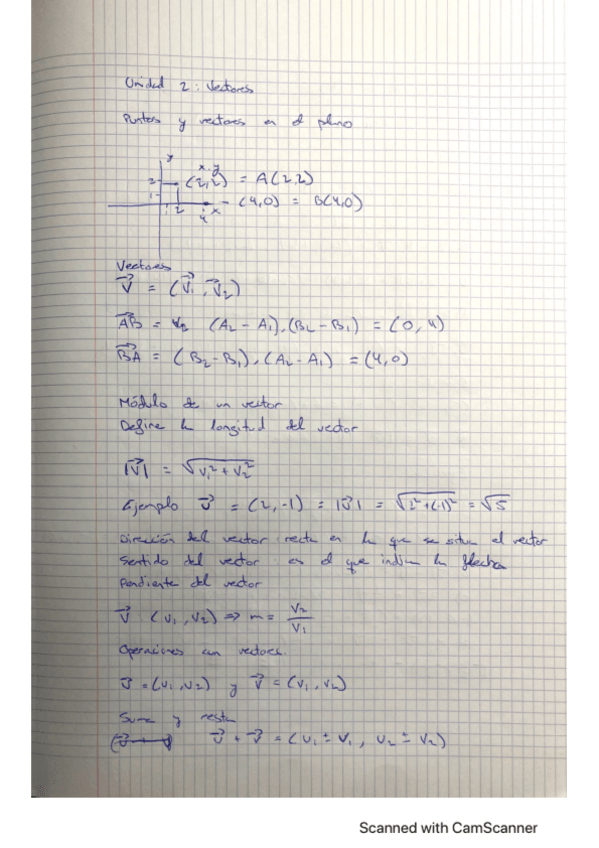 Unidad 2: Vectores
Puntos y vectores en el plano
y
x y
2 (2,2) = A(2,2)
1
- (4,0) = B(4,0)
2 4 x
Vectores
V⃗ = (V⃗₁, V⃗₂)
AB⃗ = (A₂ - A₁), (B₂ - B₁) = (0, 4)
BA⃗ = (B₂ - B₁), (A₂ - A₁) = (4,0)
Módulo de un vector
Define la longitud del vector
|V⃗| = √(v₁² + v₂²)
Ejemplo v⃗ = (2, -1) = |v⃗| = √(2² + (-1)²) = √5
Dirección del vector: recta en la que se situa el vector
Sentido del vector: es el que indica la flecha
Pendiente del vector
v⃗ (v₁, v₂) ⇒ m = v₂/v₁
Operaciones con vectores.
u⃗ = (u₁, u₂) y v⃗ = (v₁, v₂)
Suma y resta
u⃗ + v⃗ = (u₁ ± v₁, u₂ ± v₂)
Scanned with CamScanner